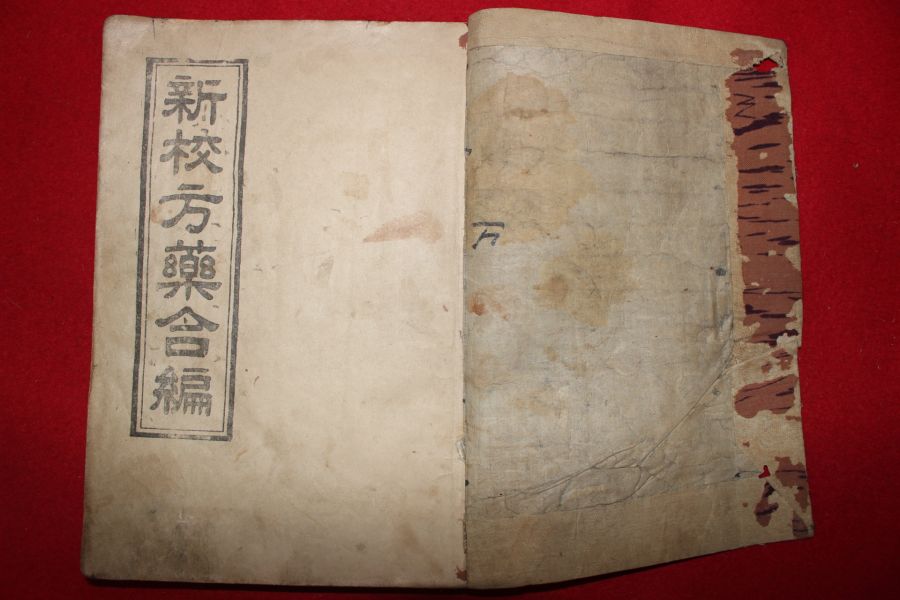 新校方藥合編